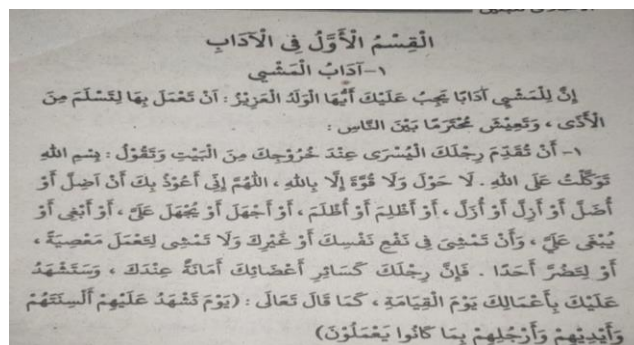 الْقِسْمُ الْأَوَّلُ فِى الْآدَابِ
١- آدَابُ الْمَشْيِ
إِنَّ لِلْمَشْيِ آدَابًا يَجِبُ عَلَيْكَ أَيُّهَا الْوَلَدُ الْعَزِيْزُ : اَنْ تَعْمَلَ بِهَا لِتَسْلَمَ مِنَ
الْأَذَى ، وَتَعِيْشَ مُحْتَرَمًا بَيْنَ النَّاسِ :
١- أَنْ تُقَدِّمَ رِجْلَكَ الْيُسْرَى عِنْدَ خُرُوْجِكَ مِنَ الْبَيْتِ وَتَقُوْلُ : بِسْمِ اللهِ
تَوَكَّلْتُ عَلَى اللهِ . لَا حَوْلَ وَلَا قُوَّةَ إِلَّا بِاللهِ ، اَللّٰهُمَّ إِنِّى أَعُوْذُ بِكَ أَنْ اَضِلَّ أَوْ
أُضَلَّ أَوْ أَزِلَّ أَوْ أُزَلَّ ، أَوْ أَظْلِمَ أَوْ أُظْلَمَ ، أَوْ أَجْهَلَ أَوْ يُجْهَلَ عَلَيَّ ، أَوْ أَبْغِى أَوْ
يُبْغَى عَلَيَّ ، وَأَنْ تَمْشِىَ فِى نَفْعِ نَفْسِكَ أَوْ غَيْرِكَ وَلَا تَمْشِى لِتَعْمَلَ مَعْصِيَةً ،
أَوْ لِتَضُرَّ أَحَدًا . فَإِنَّ رِجْلَكَ كَسَائِرِ أَعْضَائِكَ أَمَانَةٌ عِنْدَكَ ، وَسَتَشْهَدُ
عَلَيْكَ بِأَعْمَالِكَ يَوْمَ الْقِيَامَةِ ، كَمَا قَالَ تَعَالَى : (يَوْمَ تَشْهَدُ عَلَيْهِمْ أَلْسِنَتُهُمْ
وَأَيْدِيْهِمْ وَأَرْجُلُهُمْ بِمَا كَانُوا يَعْمَلُوْنَ)